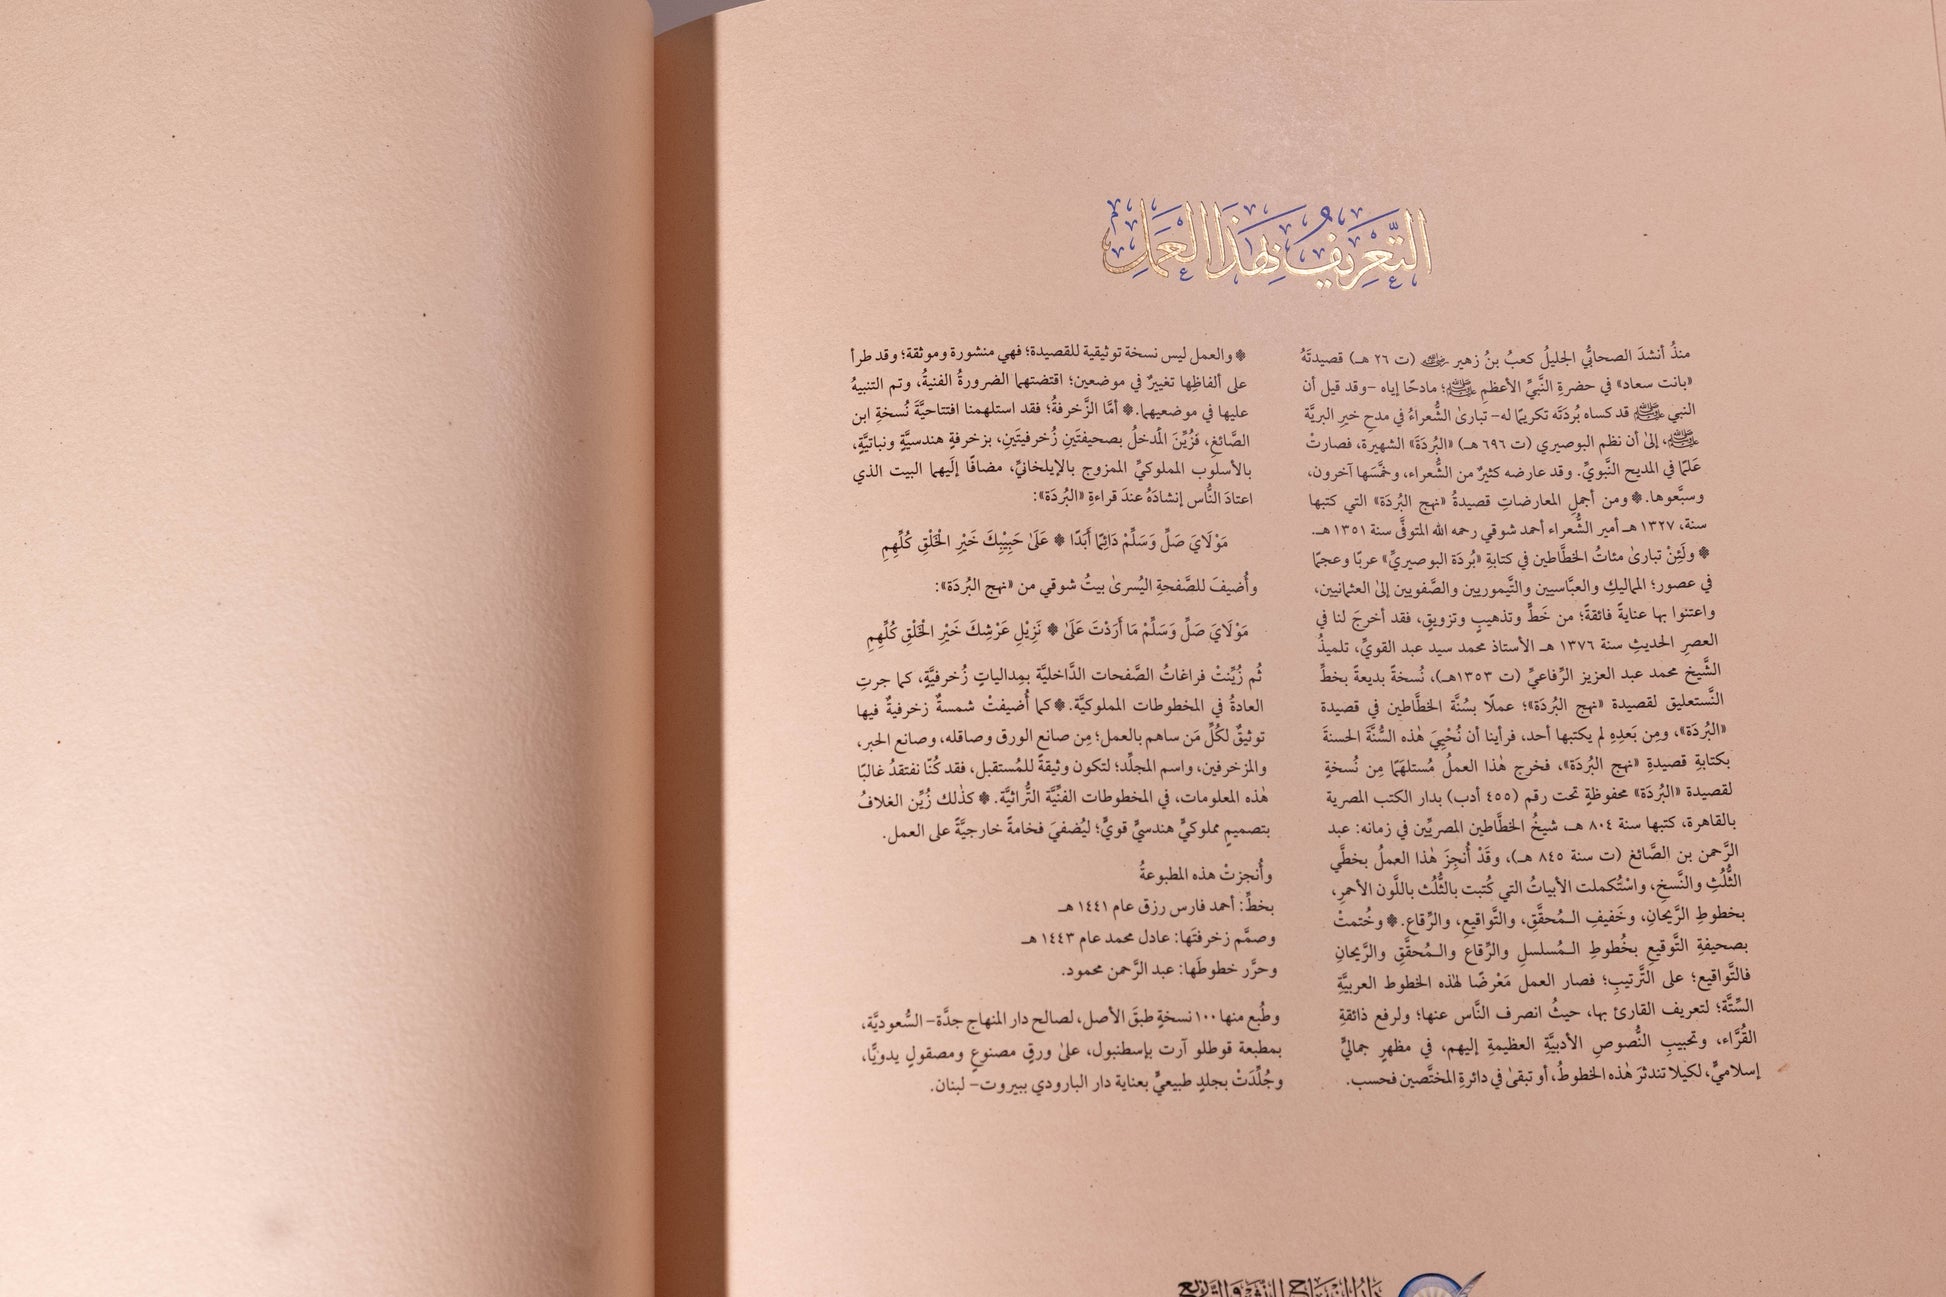 التَّعْرِيفُ بِهَذَا الْعَمَلِ
منذُ أنشدَ الصحابيُّ الجليلُ كعبُ بنُ زهير رضي الله عنه (ت ٢٦ هـ) قصيدتَهُ
«بانت سعاد» في حضرةِ النَّبيِّ الأعظمِ ﷺ؛ مادحًا إياه –وقد قيل أن
النبي ﷺ قد كساه بُردَتَه تكريمًا له– تبارىٰ الشُّعراءُ في مدحِ خيرِ البريَّة
ﷺ، إلىٰ أن نظم البوصيري (ت ٦٩٦ هـ) «البُردَةَ» الشهيرة، فصارتْ
عَلمًا في المديح النَّبويِّ. وقد عارضه كثيرٌ من الشُّعراء، وخمَّسَها آخرون،
وسبَّعوها. ❁ ومن أجملِ المعارضاتِ قصيدةُ «نهج البُردَة» التي كتبها
سنة، ١٣٢٧ هـ أمير الشُّعراء أحمد شوقي رحمه الله المتوفَّى سنة ١٣٥١ هـ.
❁ ولَئِنْ تبارىٰ مئاتُ الخطَّاطين في كتابةِ «بُردَة البوصيريِّ» عربًا وعجمًا
في عصور؛ المماليكِ والعبَّاسيين والتَّيموريين والصَّفويين إلىٰ العثمانيين،
واعتنوا بها عنايةً فائقةً؛ من خَطٍّ وتذهيبٍ وتزويقٍ، فقد أخرجَ لنا في
العصرِ الحديثِ سنة ١٣٧٦ هـ الأستاذ محمد سيد عبد القويِّ، تلميذُ
الشَّيخ محمد عبد العزيز الرِّفاعيِّ (ت ١٣٥٣هـ)، نُسخةً بديعةً بخطِّ
النَّستعليق لقصيدة «نهج البُردَة»؛ عملًا بسُنَّة الخطَّاطين في قصيدة
«البُردَة»، ومِن بَعدِهِ لم يكتبها أحد، فرأينا أن نُحْيِيَ هٰذه السُّنَّةَ الحسنةَ
بكتابةِ قصيدةِ «نهج البُردَة»، فخرج هٰذا العملُ مُستلهَمًا مِن نُسخةٍ
لقصيدة «البُردَة» محفوظةٍ تحت رقم (٤٥٥ أدب) بدار الكتب المصرية
بالقاهرة، كتبها سنة ٨٠٤ هـ، شيخُ الخطَّاطين المصريِّين في زمانه: عبد
الرَّحمن بن الصَّائغ (ت سنة ٨٤٥ هـ)، وقَدْ أُنجِزَ هٰذا العملُ بخطَّي
الثُّلُثِ والنَّسخِ، واسْتُكملت الأبياتُ التي كُتبت بالثُّلُث باللَّون الأحمرِ،
بخطوطِ الرَّيحانِ، وخَفيفِ الـمُحقَّقِ، والتَّواقيعِ، والرِّقاع. ❁ وخُتمتْ
بصحيفةِ التَّوقيعِ بخُطوطِ الـمُسلسلِ والرِّقاع والـمُحقَّقِ والرَّيحانِ
فالتَّواقيع؛ على التَّرتيبِ؛ فصار العمل مَعْرضًا لهٰذه الخطوط العربيَّةِ
السِّتَّة؛ لتعريف القارئ بها، حيثُ انصرف النَّاس عنها؛ ولرفع ذائقةِ
القُرَّاء، وتحبيبِ النُّصوصِ الأدبيَّةِ العظيمةِ إليهم، في مظهرٍ جماليٍّ
إسلاميٍّ، لكيلا تندثرَ هٰذه الخطوطُ، أو تبقىٰ في دائرةِ المختَّصين فحسب.
❁ والعمل ليس نسخة توثيقية للقصيدة؛ فهي منشورة وموثقة؛ وقد طرأ
على ألفاظِها تغييرٌ في موضعين؛ اقتضتهما الضرورةُ الفنيةُ، وتم التنبيهُ
عليها في موضعيهما. ❁ أمَّا الزَّخرفةُ؛ فقد استلهمنا افتتاحيَّةَ نُسخةِ ابن
الصَّائغِ، فزُيِّنَ المُدخلُ بصحيفتَينِ زُخرفيتَينِ، بزخرفةٍ هندسيَّةٍ ونباتيَّةٍ،
بالأسلوب المملوكيِّ الممزوج بالإيلخانيِّ، مضافًا إلَيهما البيت الذي
اعتادَ النُّاس إنشادَهُ عندَ قراءةِ «البُردَة»:
مَوْلَايَ صَلِّ وَسَلِّمْ دَائِمًا أَبَدًا ❁ عَلَىٰ حَبِيْبِكَ خَيْرِ الْخَلْقِ كُلِّهِمِ
وأُضيفَ للصَّفحةِ اليُسرىٰ بيتُ شوقي من «نهج البُردَة»:
مَوْلَايَ صَلِّ وَسَلِّمْ مَا أَرَدْتَ عَلَىٰ ❁ نَزِيْلِ عَرْشِكَ خَيْرِ الْخَلْقِ كُلِّهِمِ
ثُم زُيِّنتْ فراغاتُ الصَّفحات الدَّاخليَّة بمِدالياتٍ زُخرفيَّةٍ، كما جرتِ
العادةُ في المخطوطات المملوكيَّة. ❁ كما أُضيفتْ شمسةٌ زخرفيةٌ فيها
توثيقٌ لكُلِّ مَن ساهم بالعمل؛ مِن صانع الورق وصاقله، وصانع الحبر،
والمزخرفين، واسم المجلِّد؛ لتكون وثيقةً للمُستقبل، فقد كُنّا نفتقدُ غالبًا
هٰذه المعلومات، في المخطوطات الفنِّيَّة التُّراثيَّة. ❁ كذٰلك زُيِّن الغلافُ
بتصميمٍ مملوكيٍّ هندسيٍّ قويٍّ؛ ليُضفيَ فخامةً خارجيَّةً على العمل.
وأُنجزتْ هذه المطبوعةُ
بخطِّ: أحمد فارس رزق عام ١٤٤١ هـ
وصمَّم زخرفتَها: عادل محمد عام ١٤٤٣ هـ
وحرَّر خطوطَها: عبد الرَّحمن محمود.
وطُبع منها ١٠٠ نسخةٍ طبقَ الأصل، لصالح دار المنهاج جدَّة– السُّعوديَّة،
بمطبعة قوطلو آرت بإسطنبول، علىٰ ورقٍ مصنوعٍ ومصقولٍ يدويًّا،
وجُلِّدَتْ بجلدٍ طبيعيٍّ بعناية دار البارودي ببيروت– لبنان.